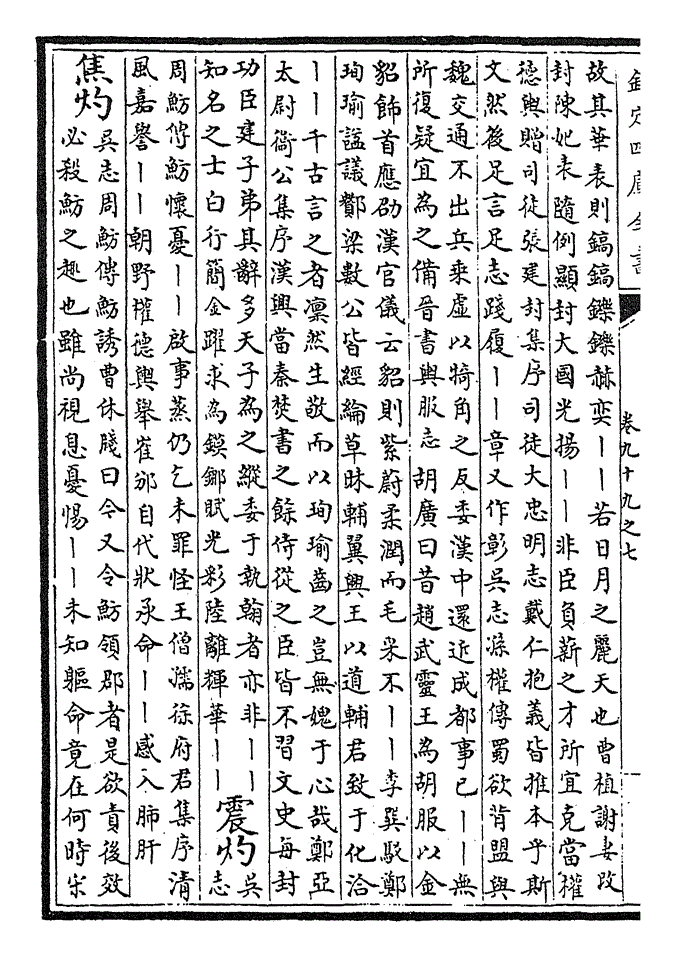 欽定四庫全書
卷九十九之七
故其華表則鎬鎬鑠鑠赫奕——若日月之麗天也曹植謝妻改
封陳妃表隨例顯封大國光揚——非臣負薪之才所宜克當權
德輿贈司徒張建封集序司徒大忠明志戴仁抱義皆推本乎斯
文然後足言足志踐履——章又作彰吳志孫權傳蜀欲背盟與
魏交通不出兵乘虛以犄角之反委漢中還近成都事已——無
所復疑宜為之備晉書輿服志胡廣曰昔趙武靈王為胡服以金
貂飾首應劭漢官儀云貂則紫蔚柔潤而毛采不——李巽駁鄭
珣瑜諡議酇梁數公皆經綸草昧輔翼興王以道輔君致于化洽
——千古言之者凛然生敬而以珣瑜齒之豈無媿于心哉鄭亞
太尉衞公集序漢興當秦焚書之餘侍從之臣皆不習文史每封
功臣建子弟其辭多天子為之縱委于執翰者亦非——
知名之士白行簡金躍求為鏌鋣賦光彩陸離輝華——
震灼
吳
志
周魴傳魴懷憂——啟事蒸仍乞未罪怪王僧孺徐府君集序清
風嘉譽——朝野權德輿舉崔邠自代狀承命——感入肺肝
焦灼
吳志周魴傳魴誘曹休牋曰今又令魴領郡者是欲責後效
必殺魴之趣也雖尚視息憂惕——未知軀命竟在何時宋